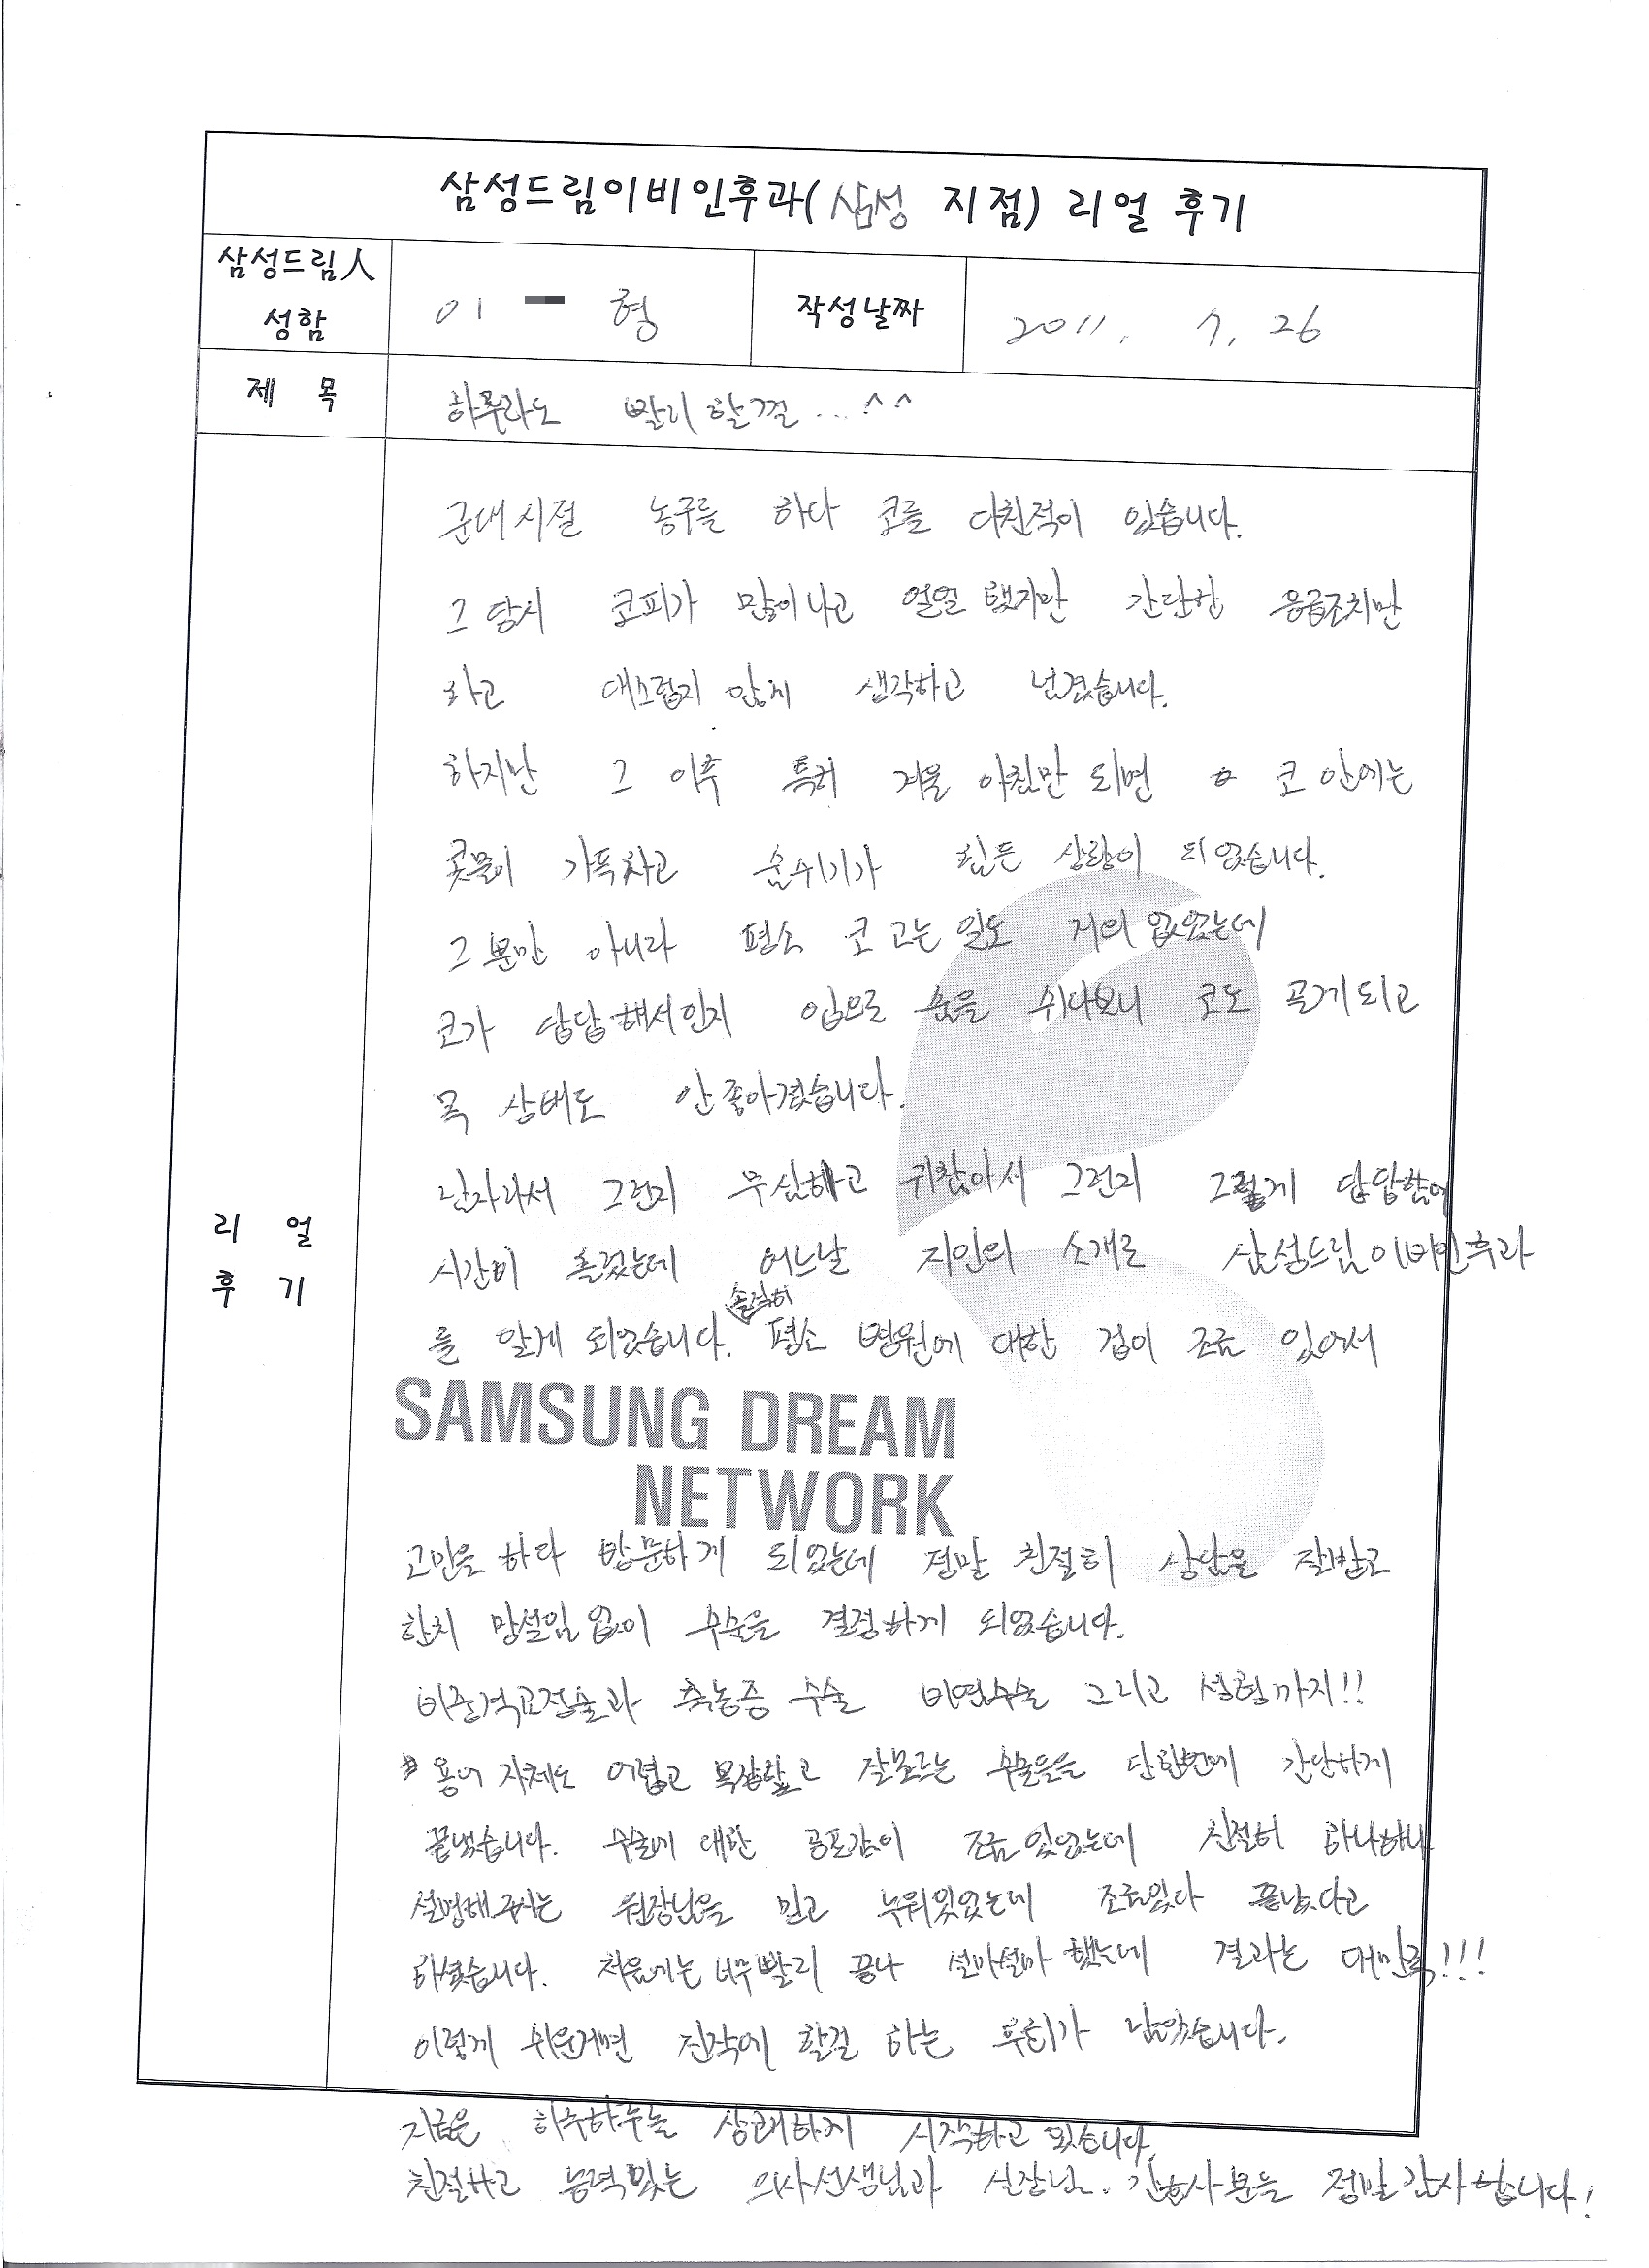 삼성드림이비인후과(삼성 지점) 리얼 후기
삼성드림人
성함
이 형
작성날짜
2011. 7. 26
제 목
하루라도 빨리 할껄...^^
리 얼
후 기
군대시절 농구를 하다 코를 다친적이 있습니다.
그 당시 코피가 많이나고 얼얼 했지만 간단한 응급조치만
하고 대스럽지 않게 생각하고 넘겼습니다.
하지만 그 이후 특히 겨울 아침만 되면 코 안에는
콧물이 가득차고 숨쉬기가 힘든 상황이 되었습니다.
그 뿐만 아니라 평소 코 고는 일도 거의 없었는데
코가 답답해서인지 입으로 숨을 쉬다보니 코도 골게되고
목 상태도 안좋아졌습니다.
남자라서 그런지 무심하고 귀찮아서 그런지 그렇게 답답함에
시간이 흘렀는데 어느날 지인의 소개로 삼성드림이비인후과
를 알게 되었습니다. 솔직히 평소 병원에 대한 겁이 조금 있어서
SAMSUNG DREAM
NETWORK
고민을 하다 방문하게 되었는데 정말 친절히 상담을 잘받고
한치 망설임 없이 수술을 결정하게 되었습니다.
비중격교정술과 축농증 수술 비염수술 그리고 성형까지!!
용어 자체도 어렵고 복잡하고 잘모르는 수술을 단한번에 간단하게
끝냈습니다. 수술에 대한 공포감이 조금있었는데 친절히 하나하나
설명해주시는 원장님을 믿고 누워있었는데 조금있다 끝났다고
하셨습니다. 처음에는 너무빨리 끝나 설마설마 했는데 결과는 대만족!!!
이렇게 쉬운거면 진작에 할걸 하는 후회가 남았습니다.
지금은 하루하루를 상쾌하게 시작하고 있습니다.
친절하고 능력있는 의사선생님과 실장님, 간호사분들 정말감사합니다!